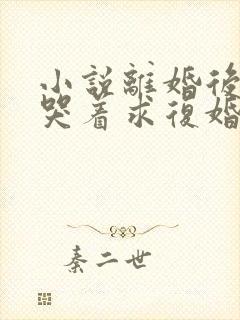 小說離婚後
哭着求復婚
秦二世